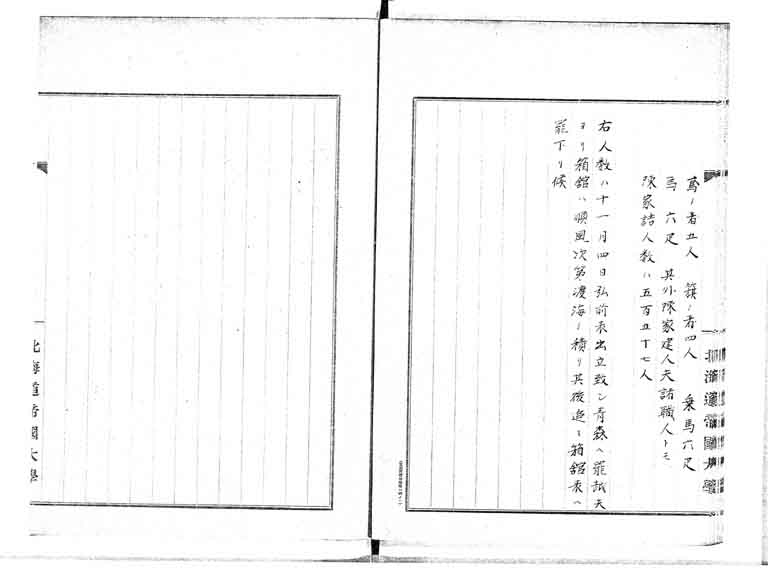 鳶ノ者五人　籏ノ者四人　乗馬六疋
馬　六疋　其外陣家建人夫諸職人トモ
陣家詰人数ハ五百五十七人
右人数ハ十一月四日弘前表出立致シ青森ヘ罷越夫
ヨリ箱舘ハ順風次第渡海ノ積リ其後追々箱舘表ヘ
罷下リ候
北海道帝國大學
北海道帝國大學